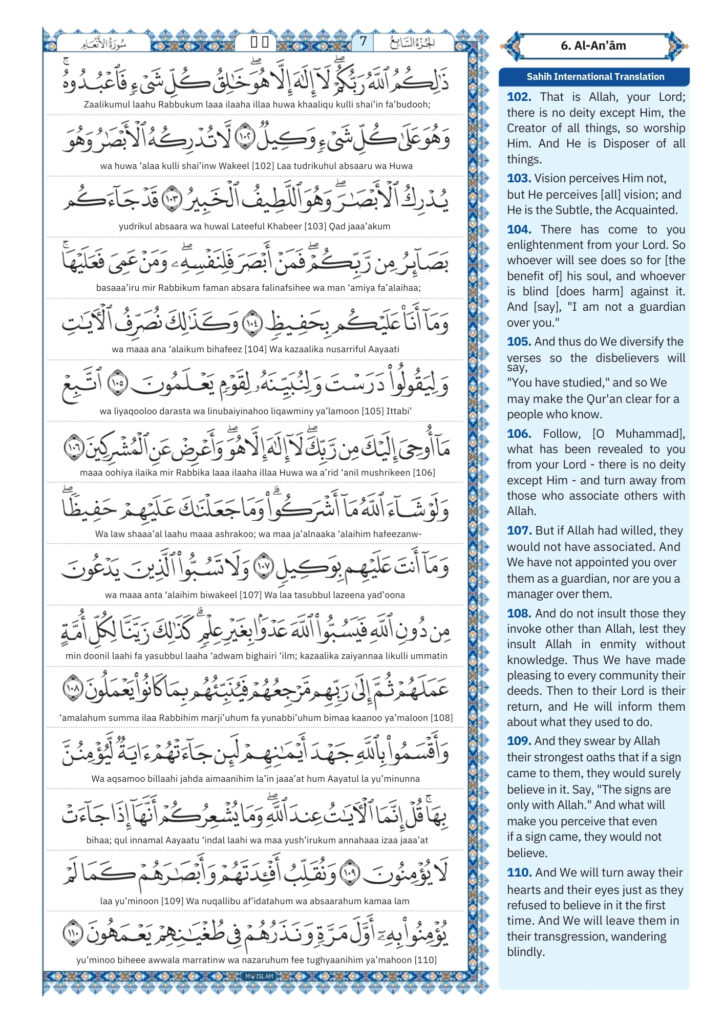 سُورَةُ الأَنْعَام
7
الجُزْءُ السَّابِعُ
ذَٰلِكُمُ ٱللَّهُ رَبُّكُمْ ۖ لَآ إِلَٰهَ إِلَّا هُوَ ۖ خَٰلِقُ كُلِّ شَىْءٍ فَٱعْبُدُوهُ ۚ
Zaalikumul laahu Rabbukum laaa ilaaha illaa huwa khaaliqu kulli shai’in fa’budooh;
وَهُوَ عَلَىٰ كُلِّ شَىْءٍ وَكِيلٌ ١٠٢ لَّا تُدْرِكُهُ ٱلْأَبْصَٰرُ وَهُوَ
wa huwa ‘alaa kulli shai’inw Wakeel [102] Laa tudrikuhul absaaru wa Huwa
يُدْرِكُ ٱلْأَبْصَٰرَ ۖ وَهُوَ ٱللَّطِيفُ ٱلْخَبِيرُ ١٠٣ قَدْ جَآءَكُم
yudrikul absaara wa huwal Lateeful Khabeer [103] Qad jaaa’akum
بَصَآئِرُ مِن رَّبِّكُمْ ۖ فَمَنْ أَبْصَرَ فَلِنَفْسِهِۦ ۖ وَمَنْ عَمِىَ فَعَلَيْهَا ۚ
basaaa’iru mir Rabbikum faman absara falinafsihee wa man ‘amiya fa’alaihaa;
وَمَآ أَنَا۠ عَلَيْكُم بِحَفِيظٍ ١٠٤ وَكَذَٰلِكَ نُصَرِّفُ ٱلْءَايَٰتِ
wa maaa ana ‘alaikum bihafeez [104] Wa kazaalika nusarriful Aayaati
وَلِيَقُولُوا۟ دَرَسْتَ وَلِنُبَيِّنَهُۥ لِقَوْمٍ يَعْلَمُونَ ١٠٥ ٱتَّبِعْ
wa liyaqooloo darasta wa linubaiyinahoo liqawminy ya’lamoon [105] Ittabi’
مَآ أُوحِىَ إِلَيْكَ مِن رَّبِّكَ ۖ لَآ إِلَٰهَ إِلَّا هُوَ ۖ وَأَعْرِضْ عَنِ ٱلْمُشْرِكِينَ ١٠٦
maaa oohiya ilaika mir Rabbika laaa ilaaha illaa Huwa wa a’rid ‘anil mushrikeen [106]
وَلَوْ شَآءَ ٱللَّهُ مَآ أَشْرَكُوا۟ ۗ وَمَا جَعَلْنَٰكَ عَلَيْهِمْ حَفِيظًا ۖ
Wa law shaaa’al laahu maaa ashrakoo; wa maa ja’alnaaka ‘alaihim hafeezanw-
وَمَآ أَنتَ عَلَيْهِم بِوَكِيلٍ ١٠٧ وَلَا تَسُبُّوا۟ ٱلَّذِينَ يَدْعُونَ
wa maaa anta ‘alaihim biwakeel [107] Wa laa tasubbul lazeena yad’oona
مِن دُونِ ٱللَّهِ فَيَسُبُّوا۟ ٱللَّهَ عَدْوًۢا بِغَيْرِ عِلْمٍ ۗ كَذَٰلِكَ زَيَّنَّا لِكُلِّ أُمَّةٍ
min doonil laahi fa yasubbul laaha ‘adwam bighairi ‘ilm; kazaalika zaiyannaa likulli ummatin
عَمَلَهُمْ ثُمَّ إِلَىٰ رَبِّهِم مَّرْجِعُهُمْ فَيُنَبِّئُهُم بِمَا كَانُوا۟ يَعْمَلُونَ ١٠٨
‘amalahum summa ilaa Rabbihim marji’uhum fa yunabbi’uhum bimaa kaanoo ya’maloon [108]
وَأَقْسَمُوا۟ بِٱللَّهِ جَهْدَ أَيْمَٰنِهِمْ لَئِن جَآءَتْهُمْ ءَايَةٌ لَّيُؤْمِنُنَّ
Wa aqsamoo billaahi jahda aimaanihim la’in jaaa’at hum Aayatul la yu’minunna
بِهَا ۚ قُلْ إِنَّمَا ٱلْءَايَٰتُ عِندَ ٱللَّهِ ۖ وَمَا يُشْعِرُكُمْ أَنَّهَآ إِذَا جَآءَتْ
bihaa; qul innamal Aayaatu ‘indal laahi wa maa yush’irukum annahaaa izaa jaaa’at
لَا يُؤْمِنُونَ ١٠٩ وَنُقَلِّبُ أَفْـِٔدَتَهُمْ وَأَبْصَٰرَهُمْ كَمَا لَمْ
laa yu’minoon [109] Wa nuqallibu af’idatahum wa absaarahum kamaa lam
يُؤْمِنُوا۟ بِهِۦٓ أَوَّلَ مَرَّةٍ وَنَذَرُهُمْ فِى طُغْيَٰنِهِمْ يَعْمَهُونَ ١١٠
yu’minoo biheee awwala marratinw wa nazaruhum fee tughyaanihim ya’mahoon [110]
MW ISLAM
6. Al-An’ām
Sahih International Translation
102. That is Allah, your Lord;
there is no deity except Him, the
Creator of all things, so worship
Him. And He is Disposer of all
things.
103. Vision perceives Him not,
but He perceives [all] vision; and
He is the Subtle, the Acquainted.
104. There has come to you
enlightenment from your Lord. So
whoever will see does so for [the
benefit of] his soul, and whoever
is blind [does harm] against it.
And [say], "I am not a guardian
over you."
105. And thus do We diversify the
verses so the disbelievers will
say,
"You have studied," and so We
may make the Qur'an clear for a
people who know.
106. Follow, [O Muhammad],
what has been revealed to you
from your Lord - there is no deity
except Him - and turn away from
those who associate others with
Allah.
107. But if Allah had willed, they
would not have associated. And
We have not appointed you over
them as a guardian, nor are you a
manager over them.
108. And do not insult those they
invoke other than Allah, lest they
insult Allah in enmity without
knowledge. Thus We have made
pleasing to every community their
deeds. Then to their Lord is their
return, and He will inform them
about what they used to do.
109. And they swear by Allah
their strongest oaths that if a sign
came to them, they would surely
believe in it. Say, "The signs are
only with Allah." And what will
make you perceive that even
if a sign came, they would not
believe.
110. And We will turn away their
hearts and their eyes just as they
refused to believe in it the first
time. And We will leave them in
their transgression, wandering
blindly.